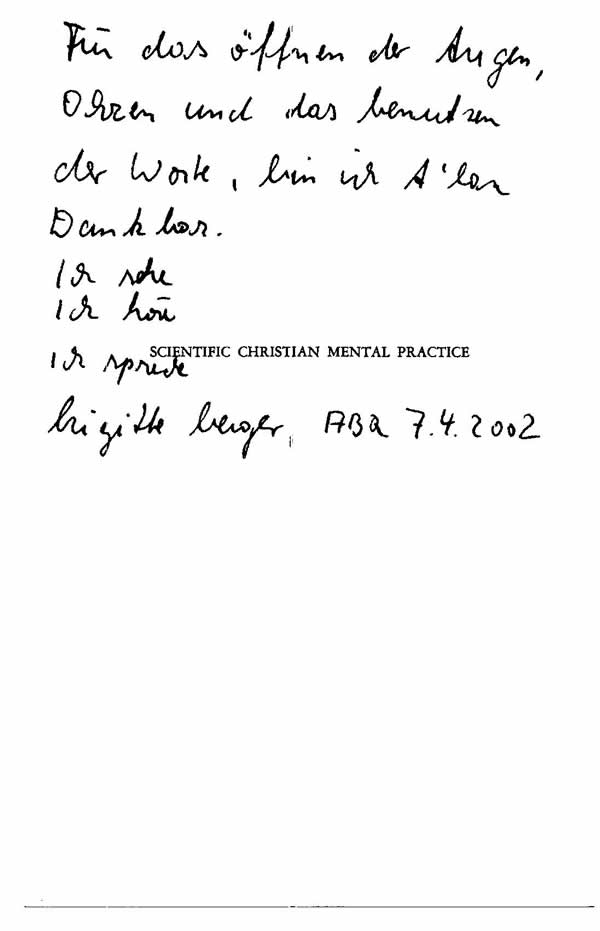 Für das öffnen der Augen,
Ohren und das benutzen
der Worte, bin ich A'lan
Dankbar.
Ich sehe
Ich höre
SCIENTIFIC CHRISTIAN MENTAL PRACTICE
Ich spreche
brigitte berger, ABQ 7.4.2002